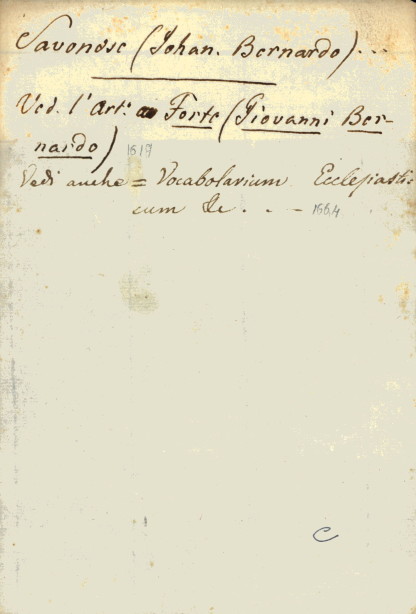 Savonese (Johan. Bernardo)...
Ved. l'Art: a Forte (Giovanni Ber-
nardo) 1619
Vedi anche = Vocabolarium Ecclesiasti-
cum &c. . . - 1664
C